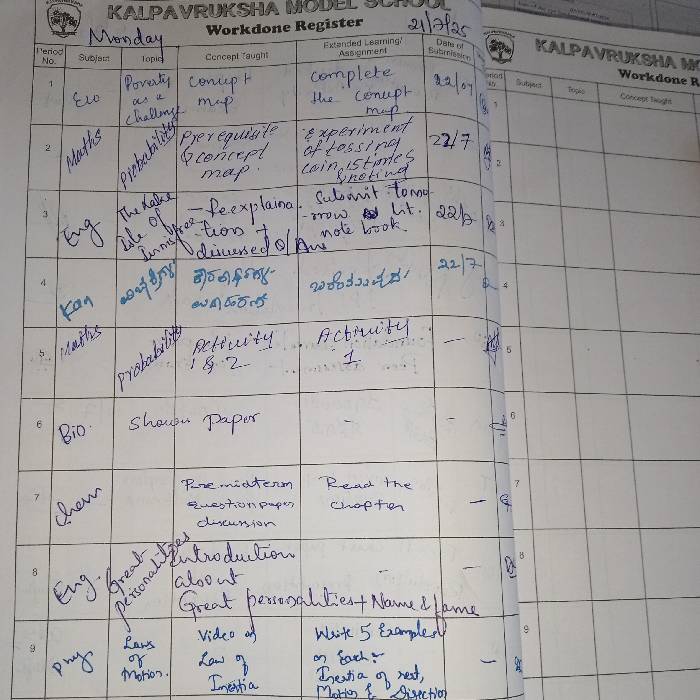 KALPAVRUKSHA MODEL SCHOOL
Workdone Register
Monday
21/7/25
Period No.
Subject
Topic
Concept Taught
Extended Learning/ Assignment
Date of Submission
1
Eco
Poverty
as a
challenge
concept
map
complete
the concept
map
22/07
2
Maths
Probability
Prerequisite
& concept
map.
Experiment
of tossing
coin, 15 times
& noting
22/7
3
Eng
The Lake
Isle of
Innisfree
- Re explaina
- tion +
discussed Q/Ans
Submit tomo
- rrow
lit.
note book.
22/7
4
Kan
22/7
5
Maths
Probability
Activity
1 & 2
Activity
1
-
6
Bio.
Shown paper
-
-
7
Chem
Pre midterm
question paper
discussion
Read the
chapter
-
8
Eng.
Great
personalities
Introduction
about
Great personalities + Name & fame
-
-
9
Phy
Laws
of
Motion.
Video on
Law of
Inertia
Write 5 Examples
on Each :-
Inertia of rest,
Motion & Direction
-
KALPAVRUKSHA MO
Workdone R
Subject
Topic
Concept Taught
1
2
3
4
5
6
7
8
9